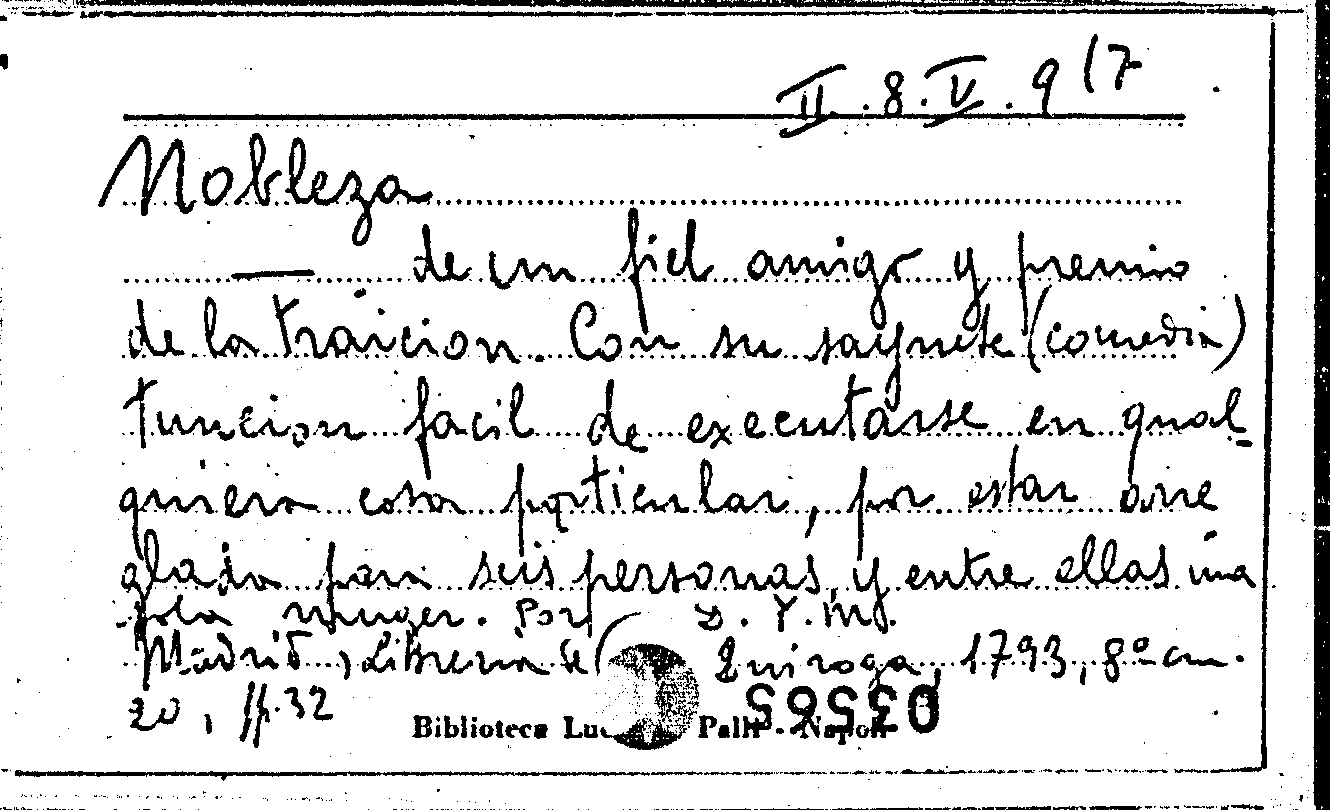 II.8.V.9(7
Nobleza
— de un fiel amigo y premio
de la traicion. Con su saynete (comedia)
funcion facil de executarse en qual-
quiera casa particular, por estar arre
glada para seis personas, y entre ellas una
sola muger. Por D. Y. M.
Madrid, Libreria de Quiroga, 1793, 8º cm.
20, pp. 32
Biblioteca Lu Palli - Napoli
03565